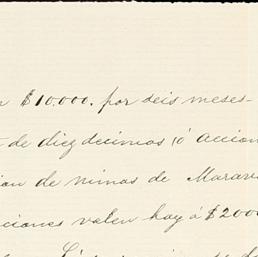 $10.000. por seis meses-
de diez decimos (ó accion
ion de minas de Marav
ciones valen hoy á $2000